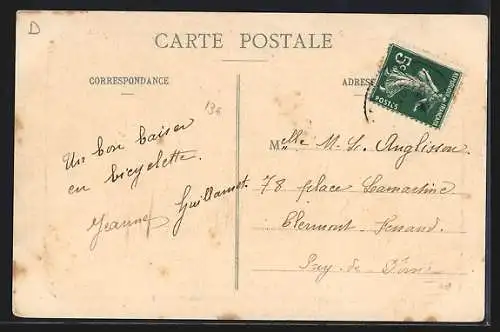 D
CARTE POSTALE
CORRESPONDANCE
ADRESSE
5c
POSTES
Un bon baiser
en bicyclette.
Jeanne Guillaumot.
Melle M. L. Anglisson.
78 place Lamartine
Clermont-Ferrand.
Puy-de-Dôme